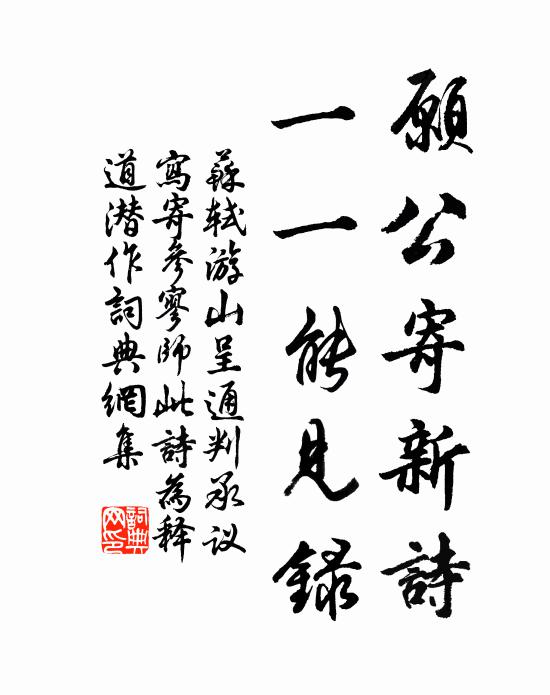 願公寄新詩
一一能見錄
蘇轼游山呈通判承议
寫寄參寥師此詩為释
道潜作詞典網集
詞典网印